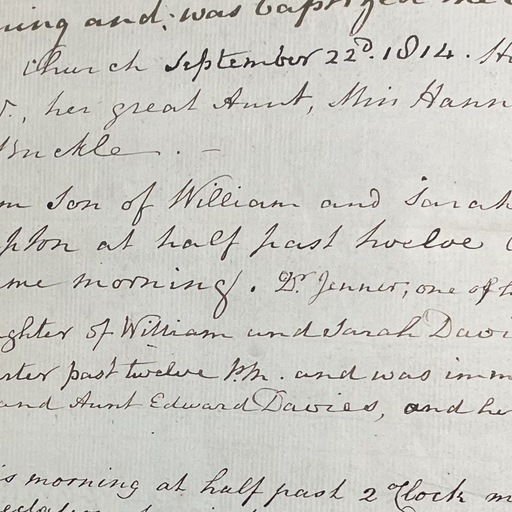 ning and, was baptized
Church September 22d. 1814.
her great Aunt, Miss Hann
Buckle. -
m Son of William and Sarah
pton at half past twelve
me morning. Dr. Jenner, one of h
ghter of William and Sarah Davi
rter past twelve P.M. and was imm
and Aunt Edward Davies, and her
is morning at half past 2 o'Clock m